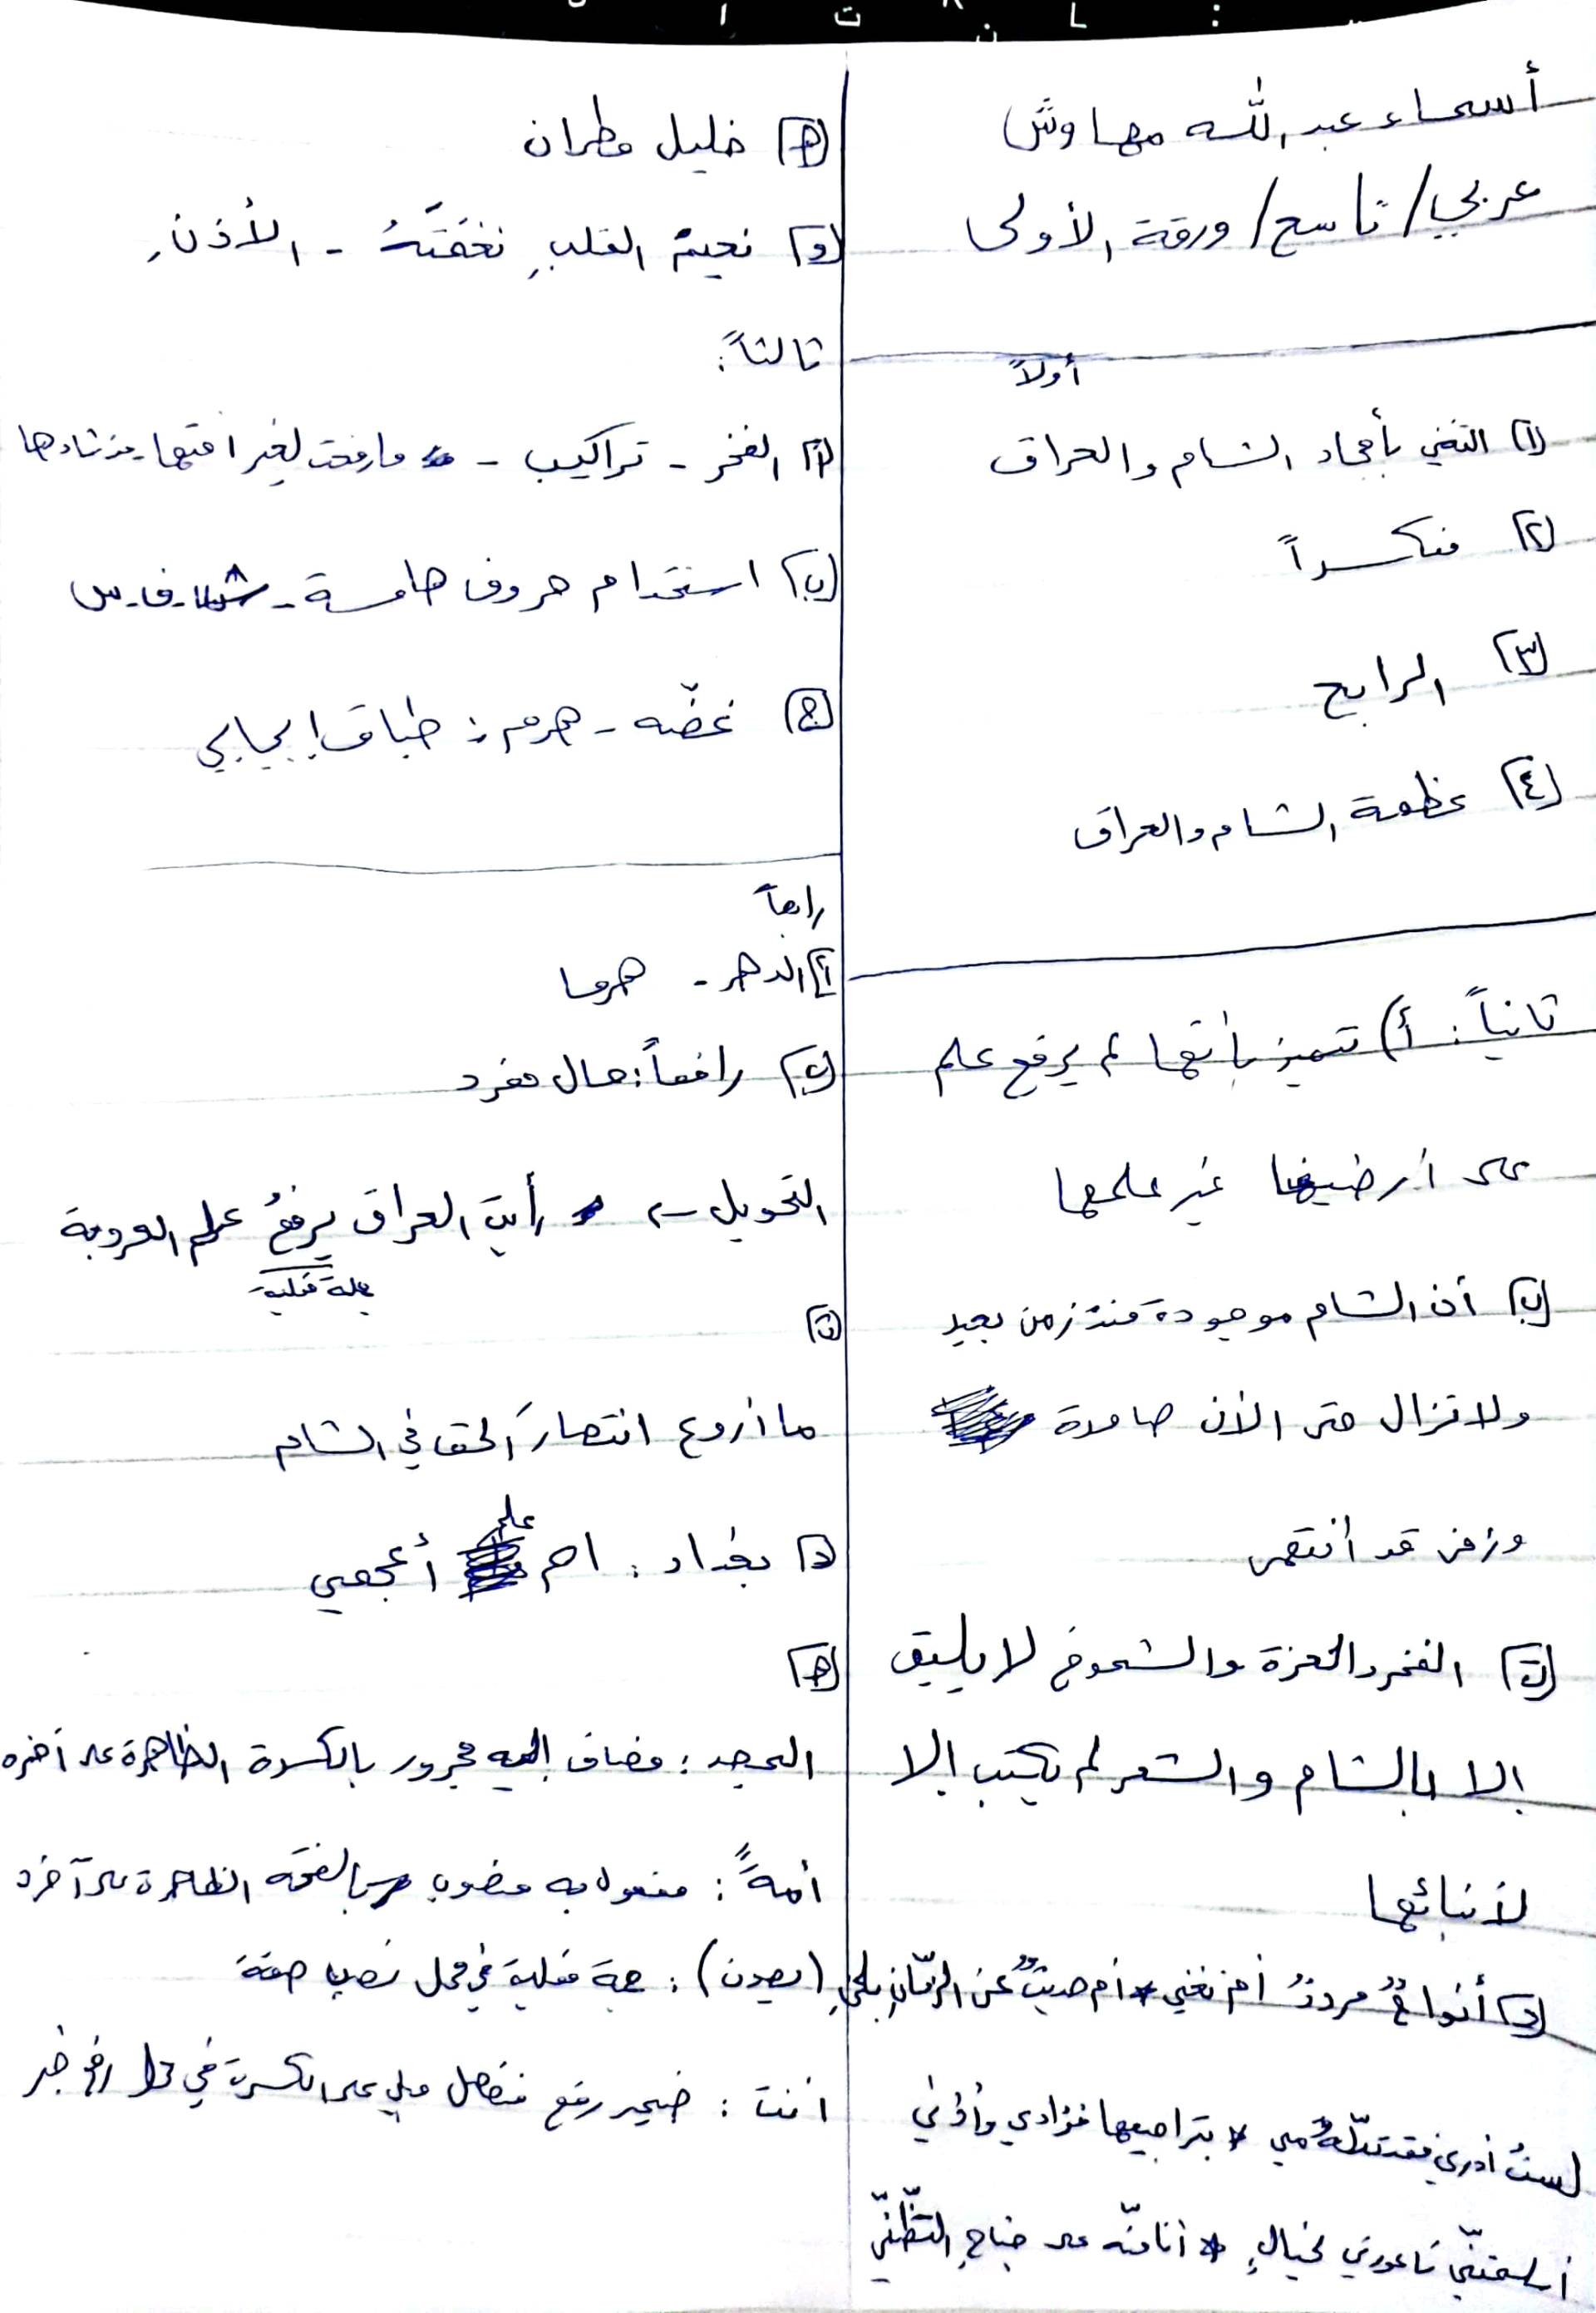 أسماء عبد الله مهاوش
عربي/تاسع/ورقة الأولى
أولاً
(١) التغني بأمجاد الشام والعراق
(٢) منكسراً
(٣) الرابع
(٤) عظمة الشام والعراق
ثانياً: أ) تتميز بأنها لم يرفع علم
على أرضيها غير علمها
(ب) أن الشام موجودة منذ زمن بعيد
ولا تزال حتى الآن صامدة
وزمن قد انتهى
(ت) الفخر والعزة والشموخ لا يليق
إلا بالشام والشعر لم يكتب إلا
لأبنائها
(د) أنواحٌ مرددٌ أم تغني * أم حديثٌ عن الزمّانِ بلحنِ
لستُ أدري فقد تدلّهَ مي * بتراجيعها فؤادي وأذني
أسلمتنّي ناعورتي لخيالٍ * أنا منّه على جناحِ التظنّي
(هـ) خليل مطران
(و) نجيةُ القلبِ نغمَتهُ - الأذنِ
ثالثاً:
(أ) الفخر - تراكيب - مارفعت لغير امتها، منشادها
(ب) استخدام حروف هامسة - ف - س
(ج) غضّه - هرم: طباق إيجابي
رابعاً
(أ) الدهر - هرما
(ب) رافعاً: حال مفرد
التحويل ← رأيت العراق يرفعُ علم العروبة
جملة فعلية
(ت)
ما أروع انتصارَ الحق في الشام
(د) بغداد: اسم علم أعجمي
(هـ)
المجد: مضاف إليه مجرور بالكسرة الظاهرة على آخره
أمةً: مفعول به منصوب بالفتحة الظاهرة على آخره
(يهدون): جملة فعلية في محل نصب صفة
أنت: ضمير رفع منفصل مبني على الكسرة في محل رفع خبر